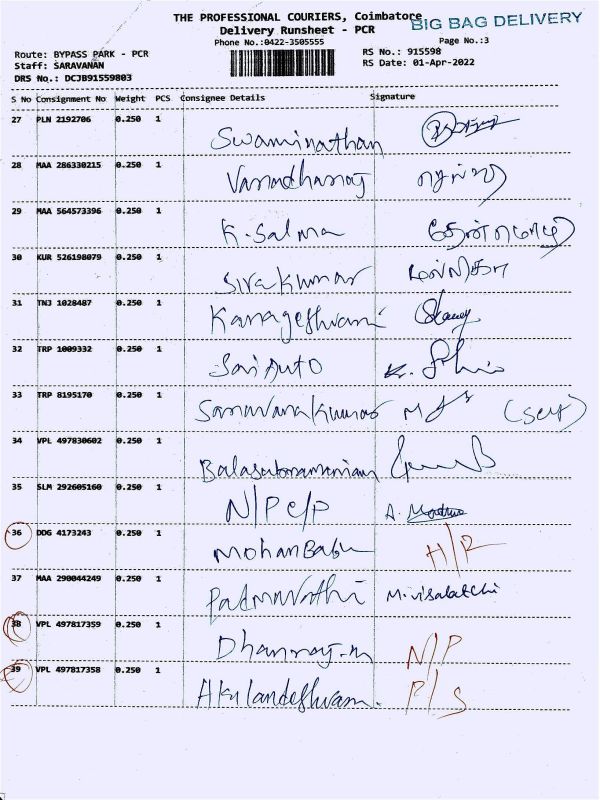 THE PROFESSIONAL COURIERS, Coimbatore
BIG BAG DELIVERY
Delivery Runsheet - PCR
Phone No.:0422-3505555
Page No.:3
Route: BYPASS PARK - PCR
RS No.: 915598
Staff: SARAVANAN
RS Date: 01-Apr-2022
DRS No.: DCJB91559803
S No Consignment No Weight PCS Consignee Details Signature
27 PLN 2192706 0.250 1 Swaminathan
28 MAA 286330215 0.250 1 Varadharaj
29 MAA 564573396 0.250 1 K. Salma
30 KUR 526198079 0.250 1 Sivakumar
31 TNJ 1028487 0.250 1 Kanageshwari
32 TRP 1009332 0.250 1 Sai Auto
33 TRP 8195170 0.250 1 Saravanakumar (self)
34 VPL 497830602 0.250 1 Balasubramaniam
35 SLM 292605160 0.250 1 N/P C/P A.
36 DDG 4173243 0.250 1 Mohan Babu H/R
37 MAA 290044249 0.250 1 Padmavathi M. Visalatchi
38 VPL 497817359 0.250 1 Dhanraj.m N/P
39 VPL 497817358 0.250 1 Akilandeshwari. P/S